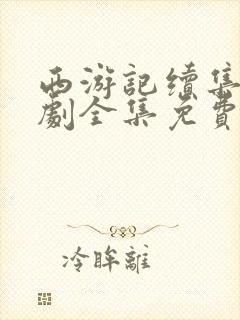 西游記續集
劇全集免費
冷眸離